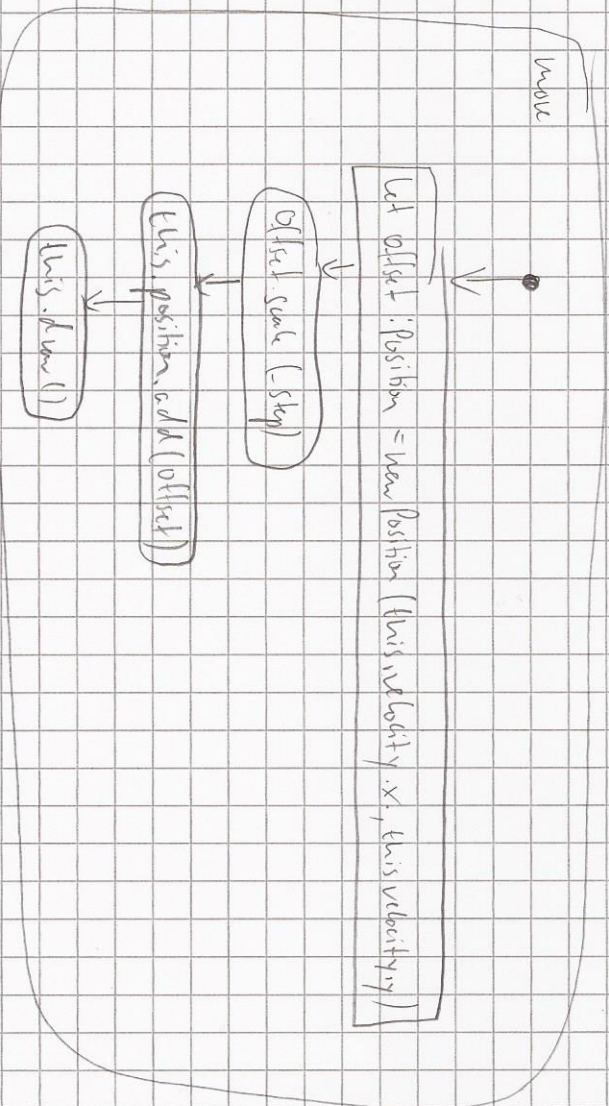 move
let offset : Position = new Position (this.velocity.x., this velocity.y)
offset.scale (_step)
this.position.add(offset)
this.draw()